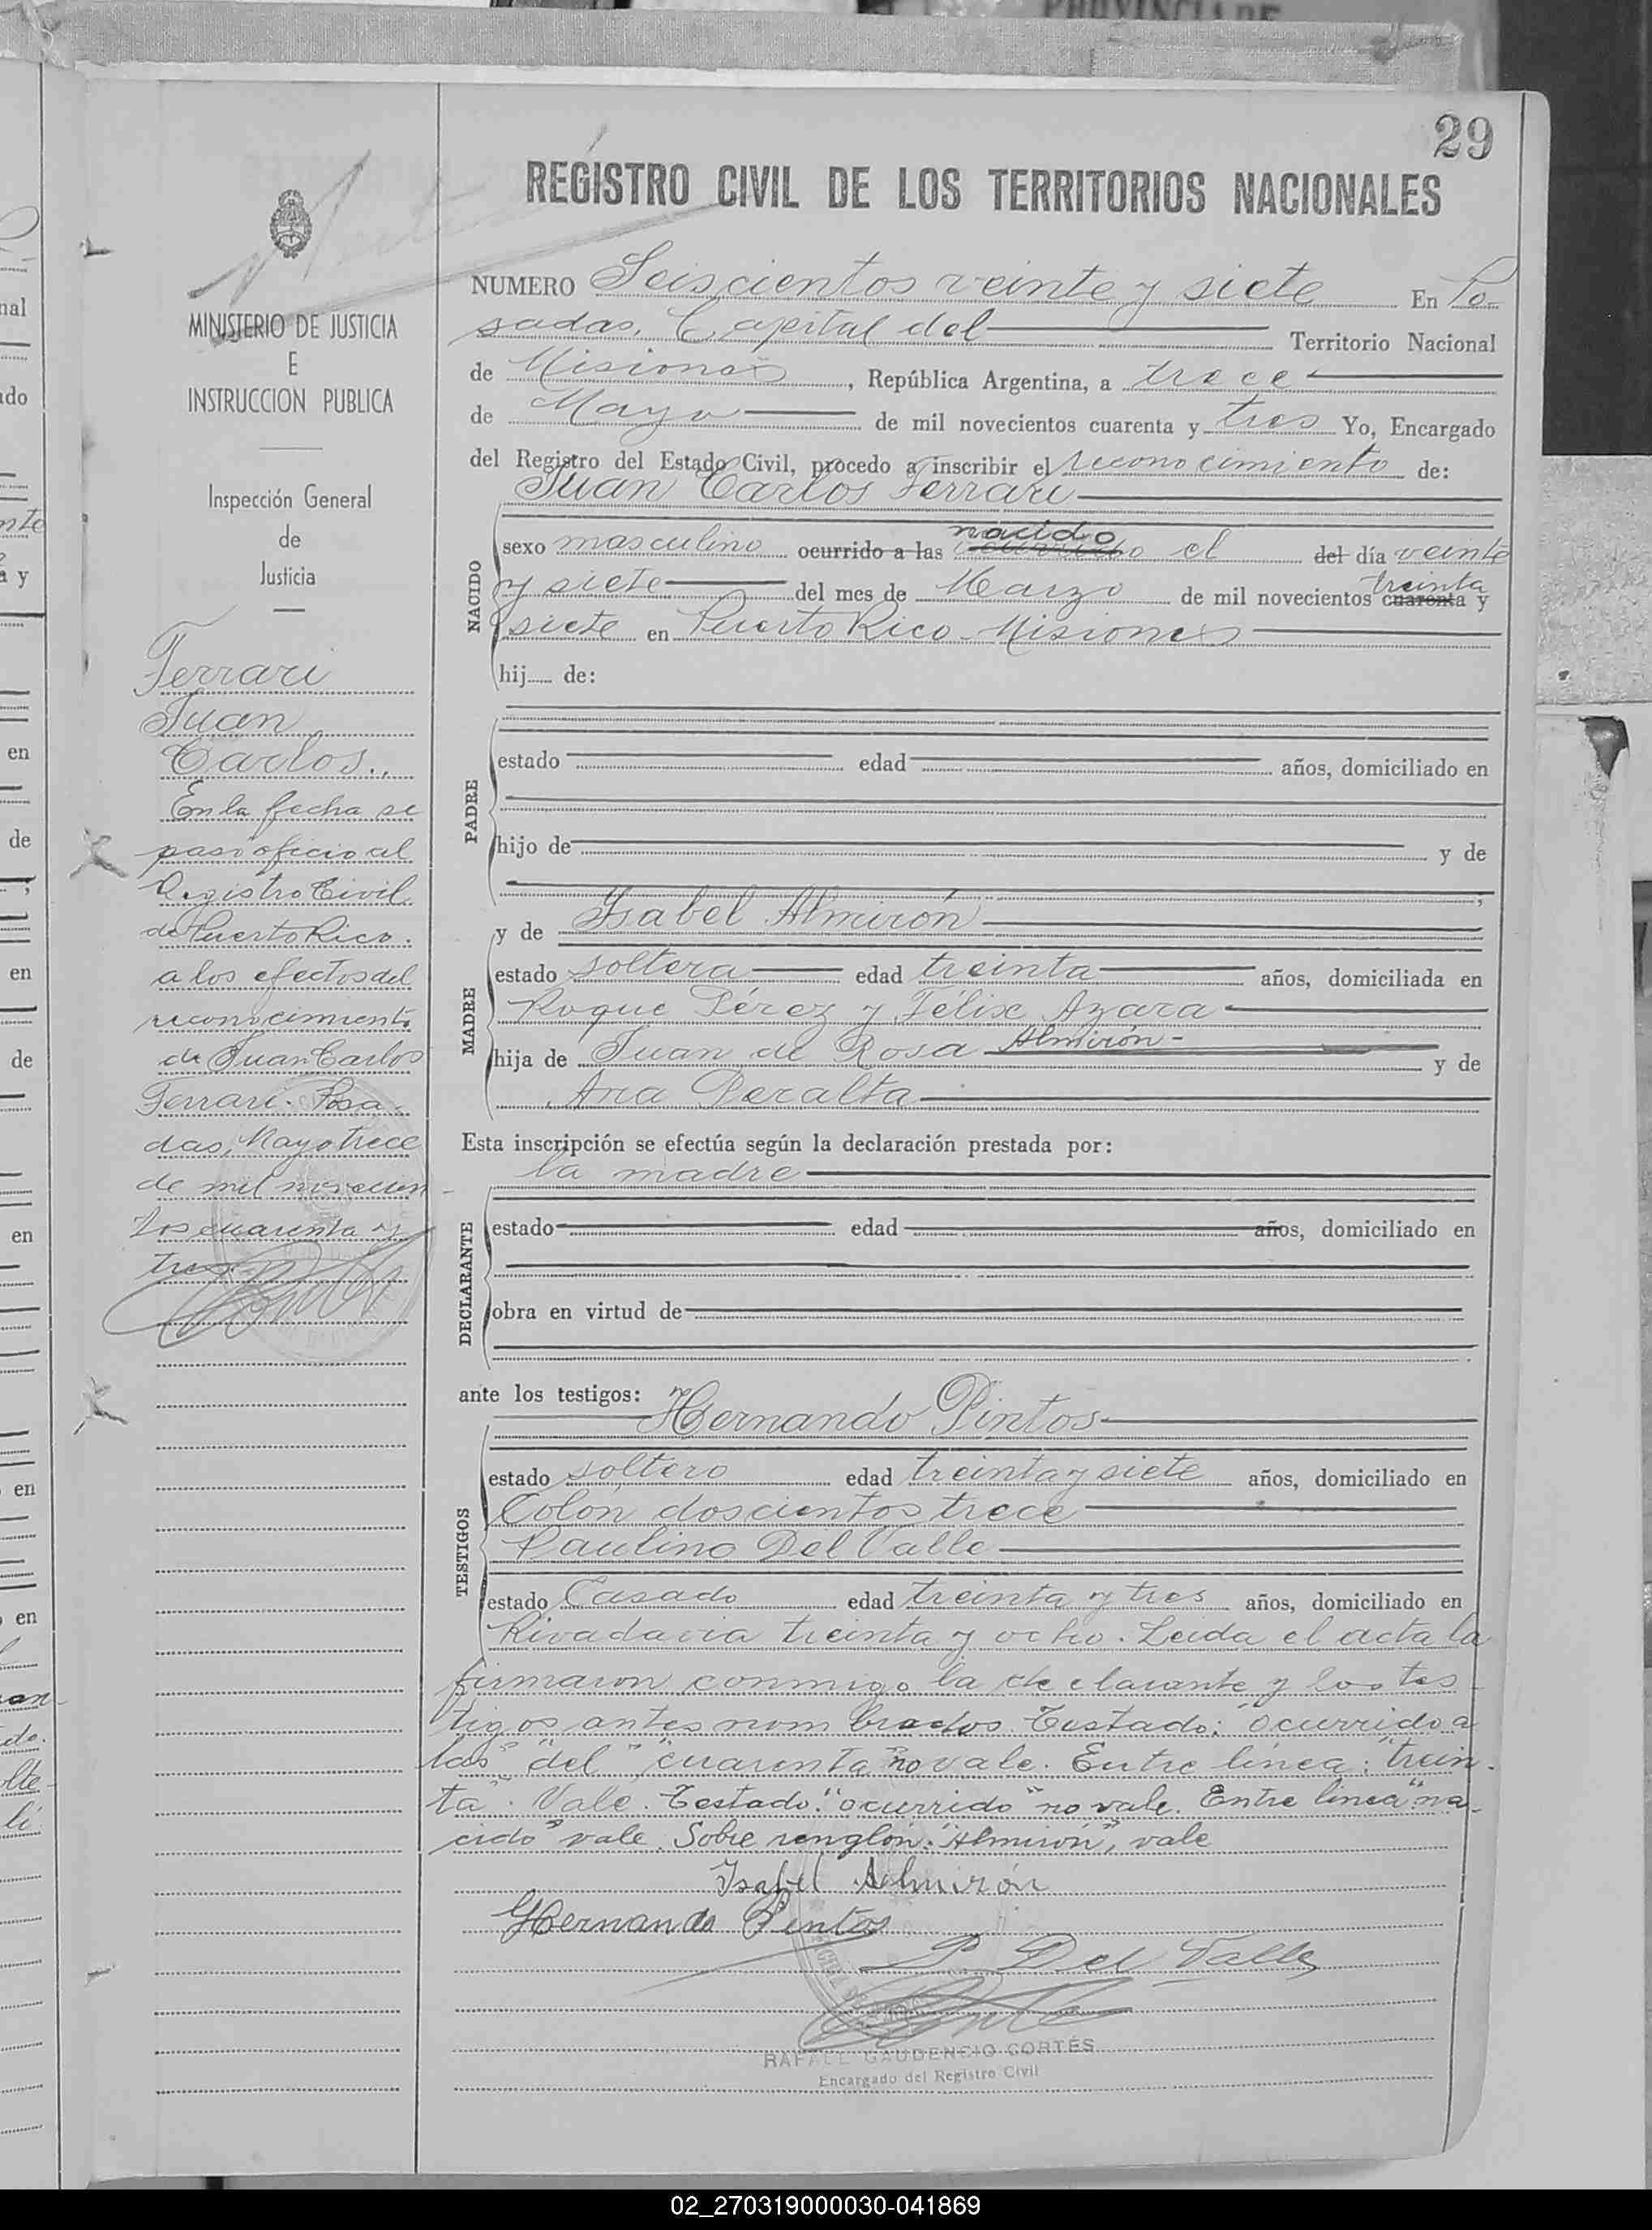 29
REGISTRO CIVIL DE LOS TERRITORIOS NACIONALES
MINISTERIO DE JUSTICIA
E
INSTRUCCION PUBLICA
Inspección General
de
Justicia
Ferrari
Juan
Carlos.
En la fecha se
pasó oficio al
Registro Civil
de Puerto Rico.
a los efectos del
reconocimiento
de Juan Carlos
Ferrari. Posa-
das, Mayo trece
de mil novecien-
tos cuarenta y
tres.
NUMERO Seiscientos veinte y siete En Po-
sadas, Capital del Territorio Nacional
de Misiones, República Argentina, a trece
de Mayo de mil novecientos cuarenta y tres Yo, Encargado
del Registro del Estado Civil, procedo a inscribir el reconocimiento de:
Juan Carlos Ferrari
NACIDO
nacido
sexo masculino ocurrido a las ocurrido el del día veinte
treinta
y siete del mes de Marzo de mil novecientos cuarenta y
siete en Puerto Rico Misiones
hij de:
PADRE
estado edad años, domiciliado en
hijo de y de
MADRE
y de Ysabel Almirón
estado soltera edad treinta años, domiciliada en
Roque Pérez y Félix Azara
hija de Juan de Rosa Almirón- y de
Ana Peralta
Esta inscripción se efectúa según la declaración prestada por:
la madre
DECLARANTE
estado edad años, domiciliado en
obra en virtud de
ante los testigos:
Hernando Pintos
TESTIGOS
estado soltero edad treinta y siete años, domiciliado en
Colón doscientos trece
Paulino Del Valle
estado Casado edad treinta y tres años, domiciliado en
Rivadavia treinta y ocho. Leida el acta la
firmaron conmigo la declarante y los tes-
tigos antes nombrados. Testado: "ocurrido a
las" "del" "cuarenta" no vale. Entre línea: "trein-
ta". Vale. Testado: "ocurrido" no vale. Entre linea "na-
cido" vale. Sobre renglón: "Almirón", vale
Isabel Almirón
Hernando Pintos
P. Del Valle
RAFAEL GAUDENCIO CORTÉS
Encargado del Registro Civil
02_270319000030-041869